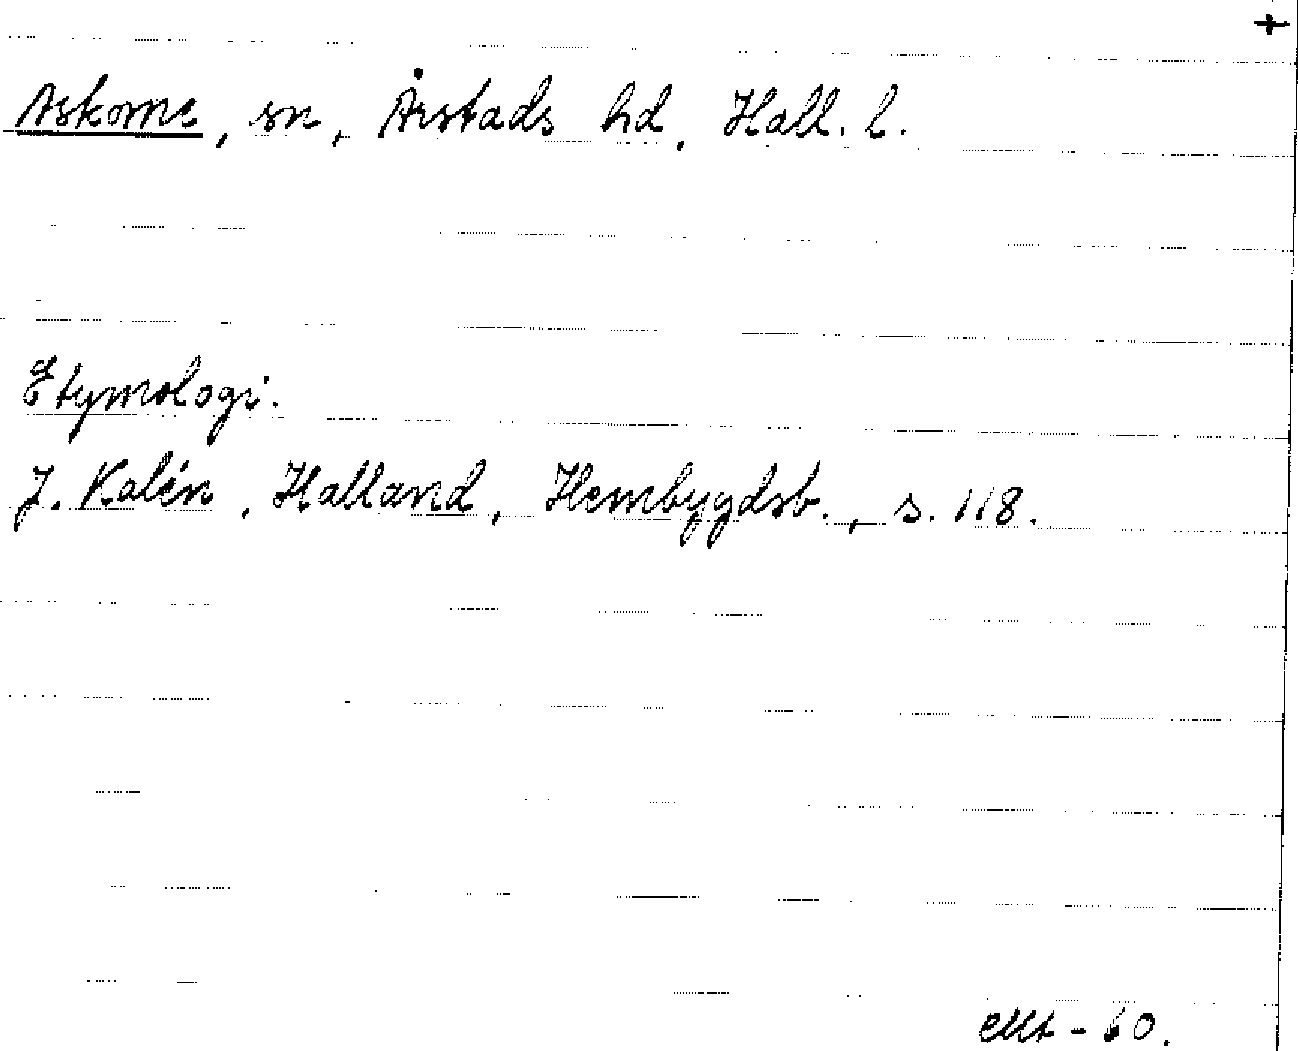 +
Askome, sn, Årstads hd, Hall. l.
Etymologi.
J. Kalén, Halland, Hembygdsb., s. 118.
- 60.